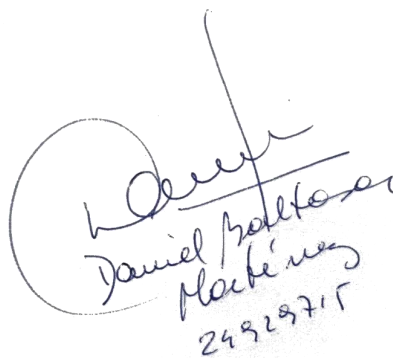 Daniel Baltasar
Martínez
24929715